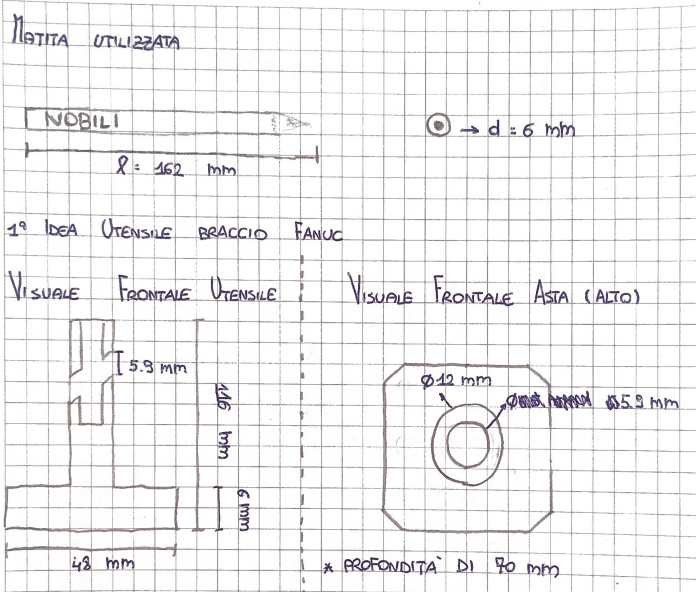 MATITA UTILIZZATA
NOBILI
→ d = 6 mm
l = 162 mm
1ª IDEA UTENSILE BRACCIO FANUC
VISUALE FRONTALE UTENSILE
VISUALE FRONTALE ASTA (ALTO)
5.9 mm
Ø12 mm
Ø 5.9 mm
116 mm
6 mm
48 mm
* PROFONDITÀ DI 70 mm